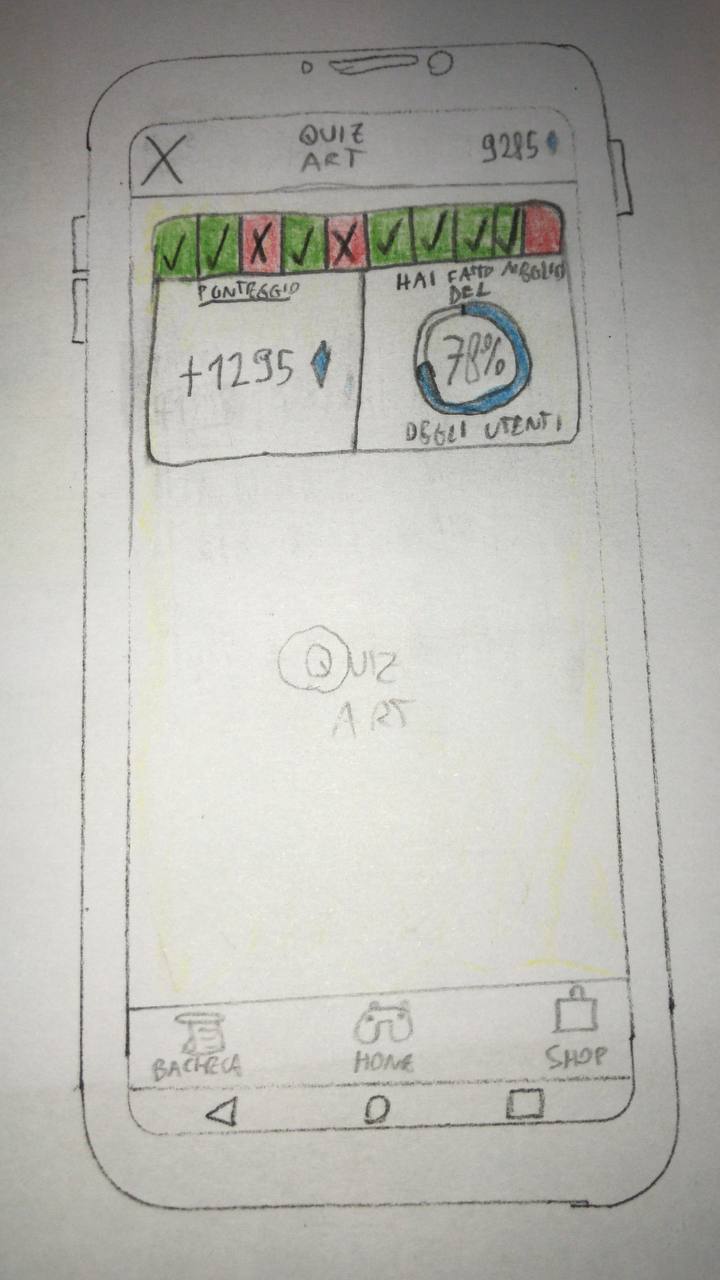 X
QUIZ
ART
9285
PUNTEGGIO
+1295
HAI FATTO MEGLIO
DEL
78%
DEGLI UTENTI
QUIZ
ART
BACHECA
HOME
SHOP